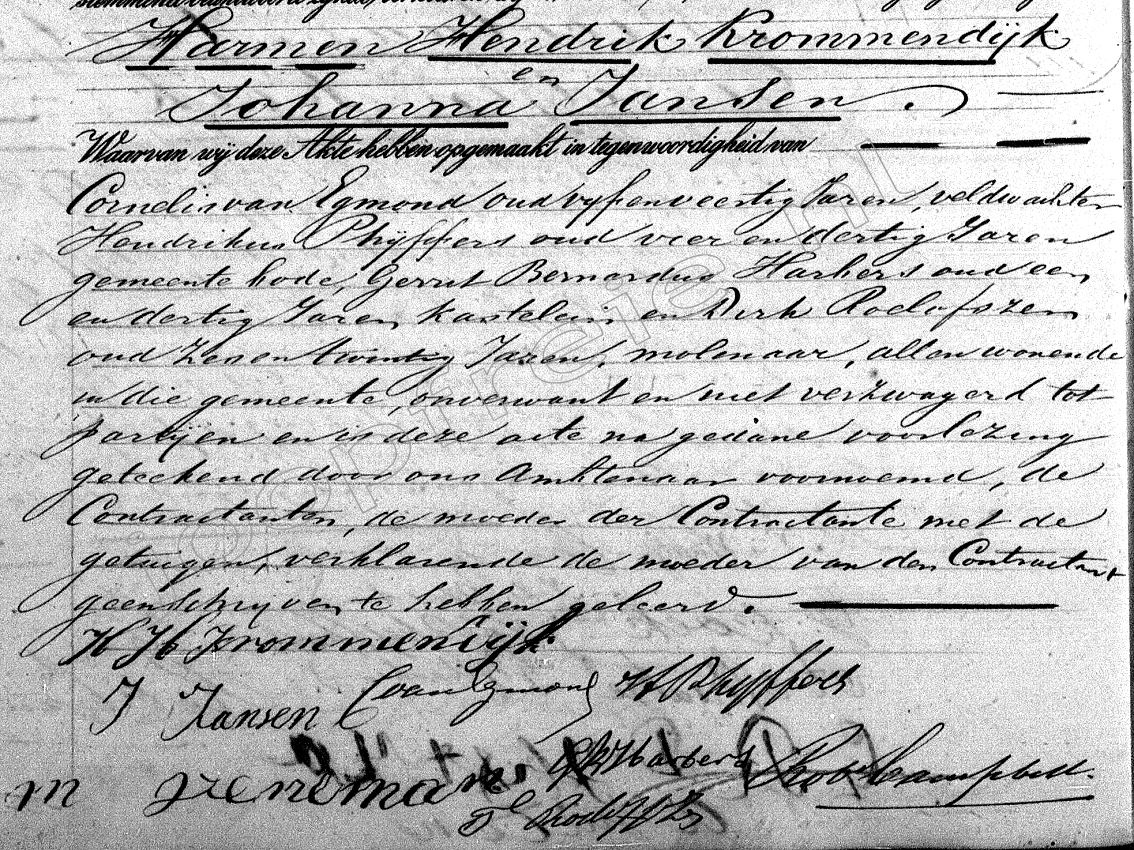 Harmen Hendrik Krommendijk
en
Johanna Jansen.
Waarvan wij deze Akte hebben opgemaakt in tegenwoordigheid van
Cornelis van Egmond oud vyf en veertig Jaren, veldwachter
Hendrikus Phijffers oud vier en dertig Jaren
gemeente bode, Gerrit Bernardus Harbers oud een
en dertig Jaren, kastelein en Derk Roelofszen
oud zes en twintig Jaren, molenaar, allen wonende
in die gemeente, onverwant en niet verzwagerd tot
partijen en is deze acte na gedane voorlezing
geteekend door ons Ambtenaar voornoemd, de
Contractanten, de moeder der Contractante met de
getuigen, verklarende de moeder van den Contractant
geen schrijven te hebben geleerd.
H H Krommendijk
J Jansen C van Egmond H Phyffers
G B Harbers
m